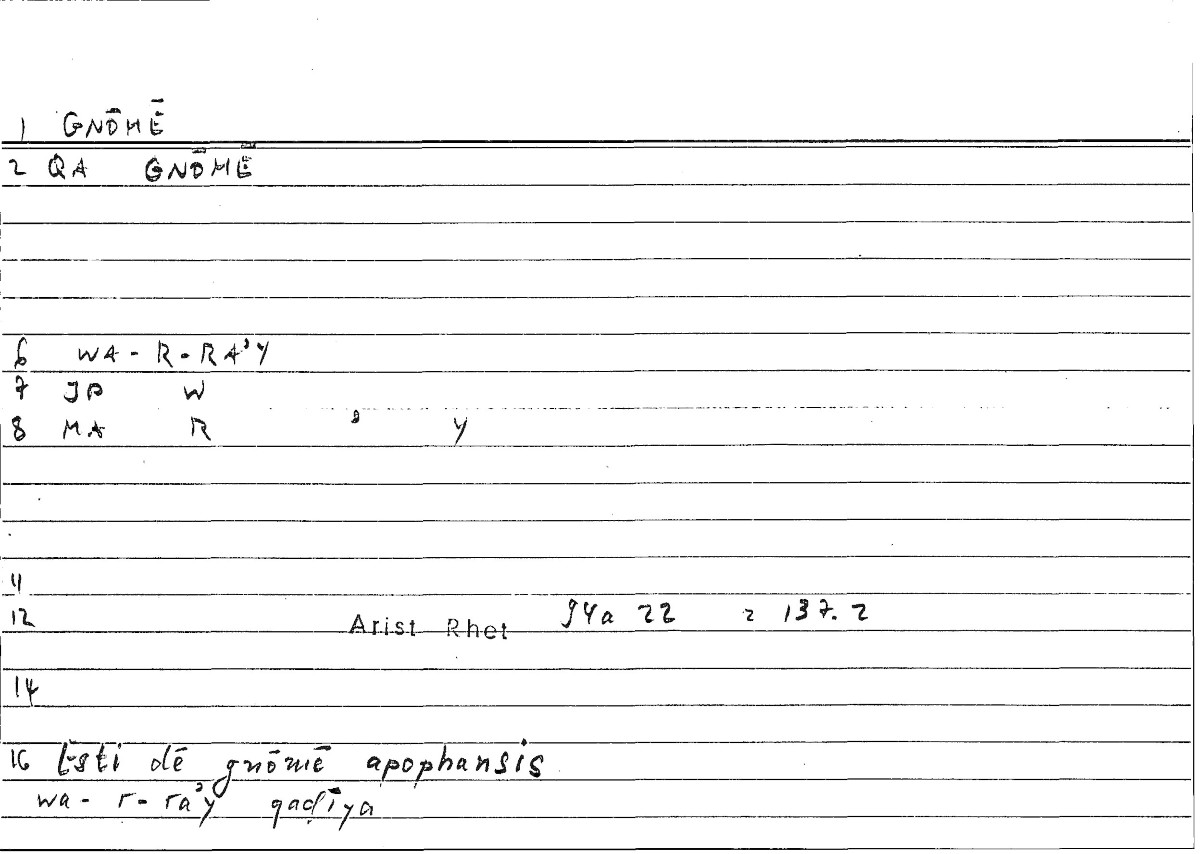 1 GNŌMĒ
2 QA GNŌMĒ
6 WA - R - RA'Y
7 JP W
8 MA R ' Y
11
12 Arist Rhet 94a 22 = 137.2
14
16 Esti dē gnōmē apophansis
wa - r - ra'y qaḍīya